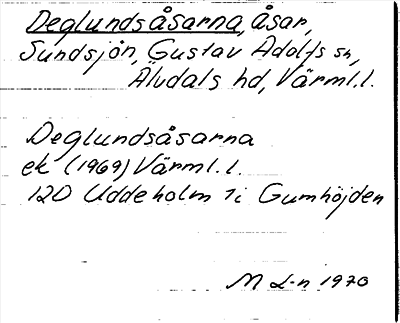 Deglundsåsarna, åsar,
Sundsjön, Gustav Adolfs sn,
Älvdals hd, Värml.l.
Deglundsåsarna
ek (1969) Värml.l.
12D Uddeholm 1i Gumhöjden
M L-n 1970